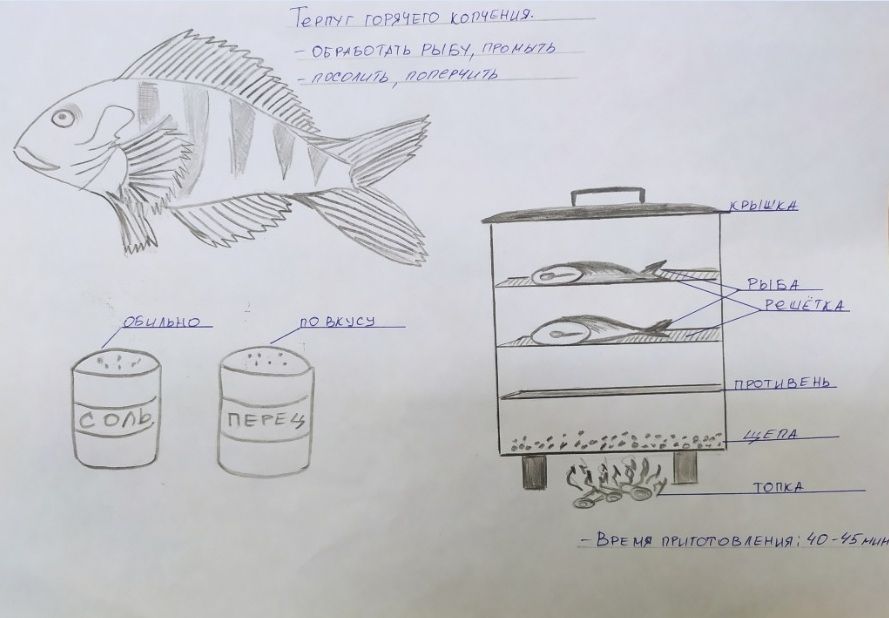 Терпуг горячего копчения.
- обработать рыбу, промыть
- посолить, поперчить
крышка
рыба
решётка
обильно
по вкусу
соль
перец
противень
щепа
топка
- Время приготовления: 40-45 мин